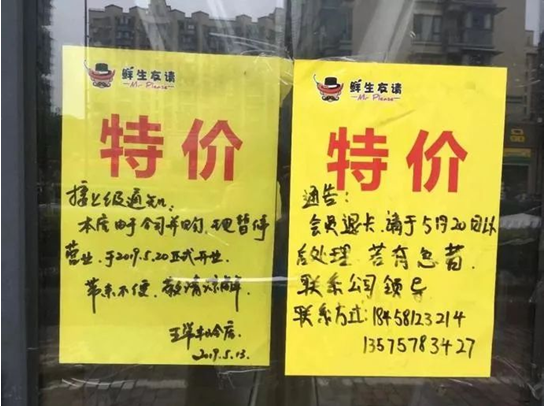 鲜生友请
Mr Please
特价
接上级通知,
本店由于公司并购,现暂停
营业,于2019.5.20正式开业,
带来不便,敬请凉解.
店.
2019.5.13.
鲜生友请
Mr Please
特价
通告:
会员退卡,请于5月20日以
后处理 若有急者,
联系公司领导
联系方式:18458123214
13575783427